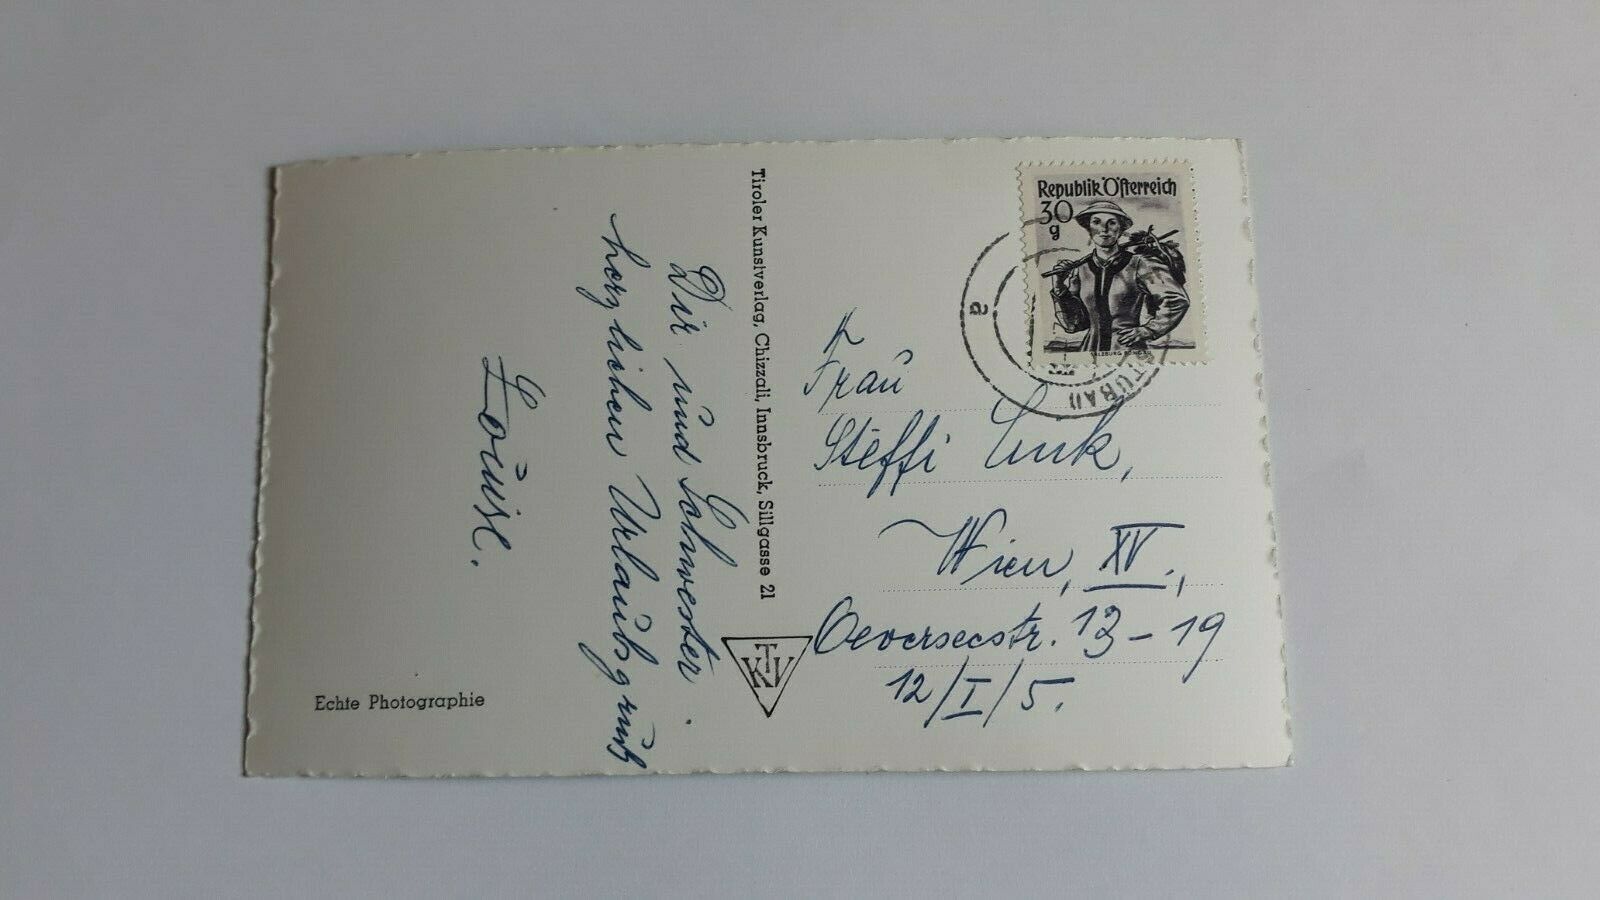 Dir und Schwester
herzlichen Urlaubsgruß
Louise.
Echte Photographie
Tiroler Kunstverlag, Chizzali, Innsbruck, Sillgasse 21
TKV
Republik Österreich
30
g
SALZBURG PONGAU
a
STUBAI
Frau
Steffi Link,
Wien, XV.,
Oeverseestr. 13-19
12/I/5.